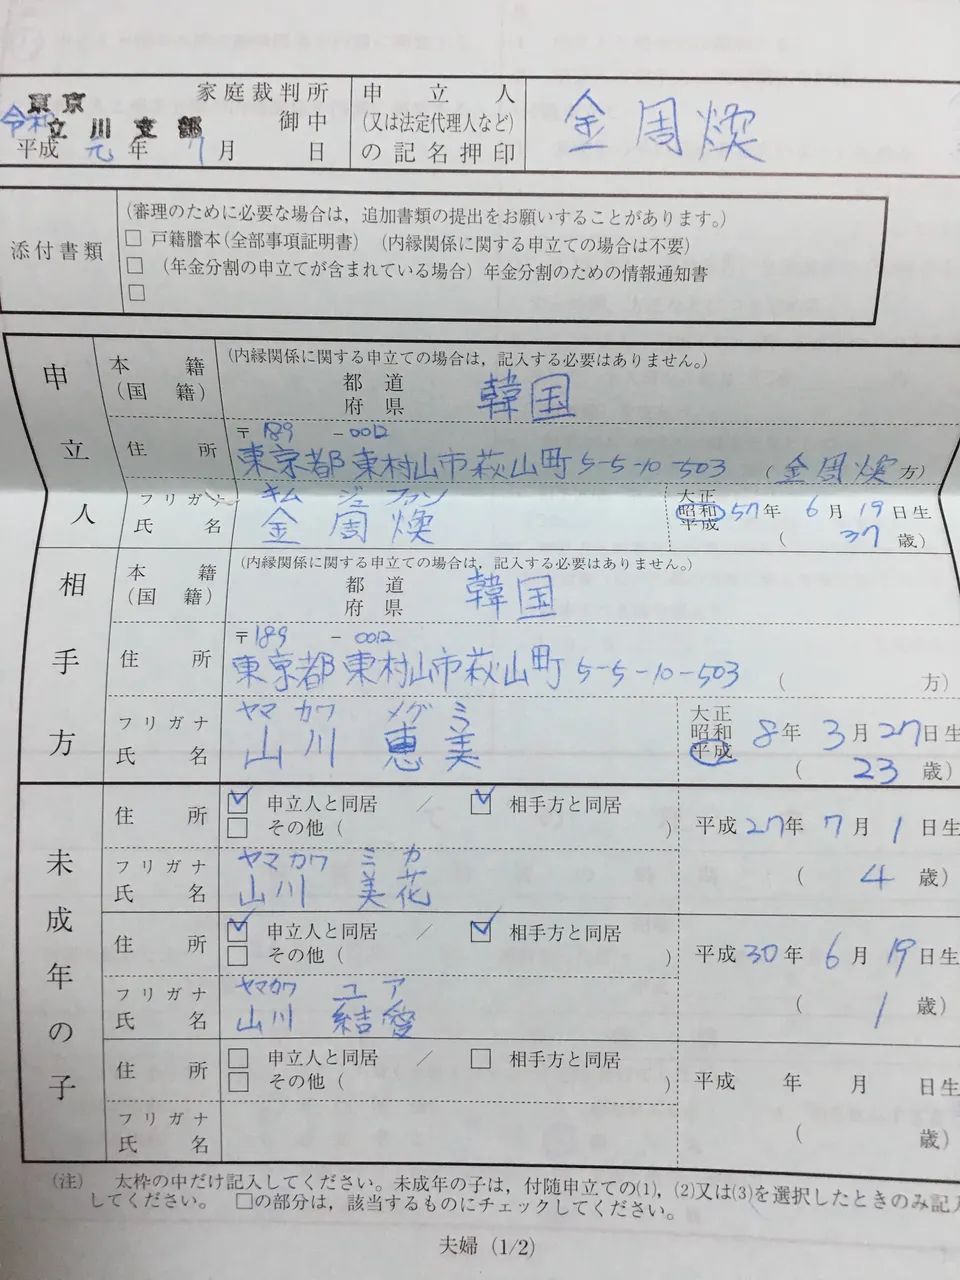 東京 家庭裁判所
令和 立川支部 御中
平成 元年 7月 日
申立人
(又は法定代理人など)
の記名押印
金周煥
添付書類
(審理のために必要な場合は，追加書類の提出をお願いすることがあります。)
□ 戸籍謄本(全部事項証明書) (内縁関係に関する申立ての場合は不要)
□ (年金分割の申立てが含まれている場合) 年金分割のための情報通知書
□
申立人
本籍 (内縁関係に関する申立ての場合は，記入する必要はありません。)
(国籍) 都道府県 韓国
住所 〒189-0012
東京都東村山市萩山町5-5-10-503 (金周煥方)
フリガナ キム ジュ ファン
氏名 金周煥
大正 昭和 平成 57年 6月 19日生
(37歳)
相手方
本籍 (内縁関係に関する申立ての場合は，記入する必要はありません。)
(国籍) 都道府県 韓国
住所 〒189-0012
東京都東村山市萩山町5-5-10-503 ( 方)
フリガナ ヤマ カワ メグミ
氏名 山川 恵美
大正 昭和 平成 8年 3月 27日生
(23歳)
未成年の子
住所 ☑ 申立人と同居 ／ ☑ 相手方と同居
□ その他 ( )
平成 27年 7月 1日生
(4歳)
フリガナ ヤマカワ ミカ
氏名 山川 美花
住所 ☑ 申立人と同居 ／ ☑ 相手方と同居
□ その他 ( )
平成 30年 6月 19日生
(1歳)
フリガナ ヤマカワ ユア
氏名 山川 結愛
住所 □ 申立人と同居 ／ □ 相手方と同居
□ その他 ( )
平成 年 月 日生
( 歳)
フリガナ
氏名
(注) 太枠の中だけ記入してください。未成年の子は，付随申立ての(1)，(2)又は(3)を選択したときのみ記入
してください。 □の部分は，該当するものにチェックしてください。
夫婦 (1/2)